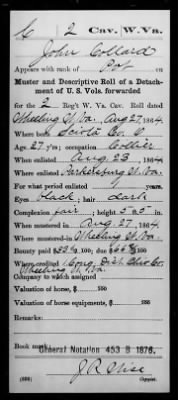 C 2 Cav. W. Va.
John Collard
Appears with rank of Pvt on
Muster and Descriptive Roll of a Detach-
ment of U. S. Vols. forwarded
for the 2 Reg't W. Va. Cav. Roll dated
Wheeling W. Va. Aug 27, 1864.
Where born Sciota Co. O
Age 27 y'rs; occupation Collier
When enlisted Aug 23, 1864
Where enlisted Parkersburg W. Va.
For what period enlisted years.
Eyes black; hair dark
Complexion fair; height 5 ft. 5 in.
When mustered in Aug 27, 1864
Where mustered in Wheeling W. Va.
Bounty paid $33 100; due $ 100
Where credited 1 Cong. Dist. Ohio Co.
Wheeling W. Va.
Company to which assigned
Valuation of horse, $ 100
Valuation of horse equipments, $ 100
Remarks:
Book mark:
General Notation 453 B 1876.
J. R. Wise
(339) Copyist.